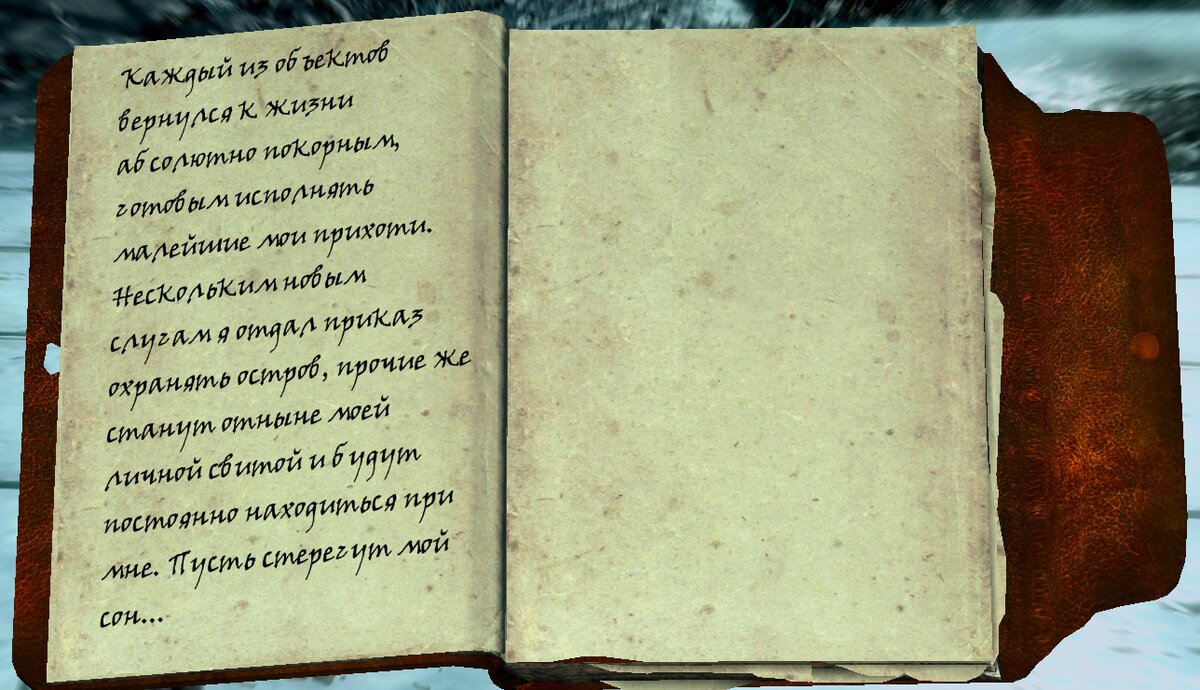 Каждый из объектов
вернулся к жизни
абсолютно покорным,
готовым исполнять
малейшие мои прихоти.
Нескольким новым
слугам я отдал приказ
охранять остров, прочие же
станут отныне моей
личной свитой и будут
постоянно находиться при
мне. Пусть стерегут мой
сон...